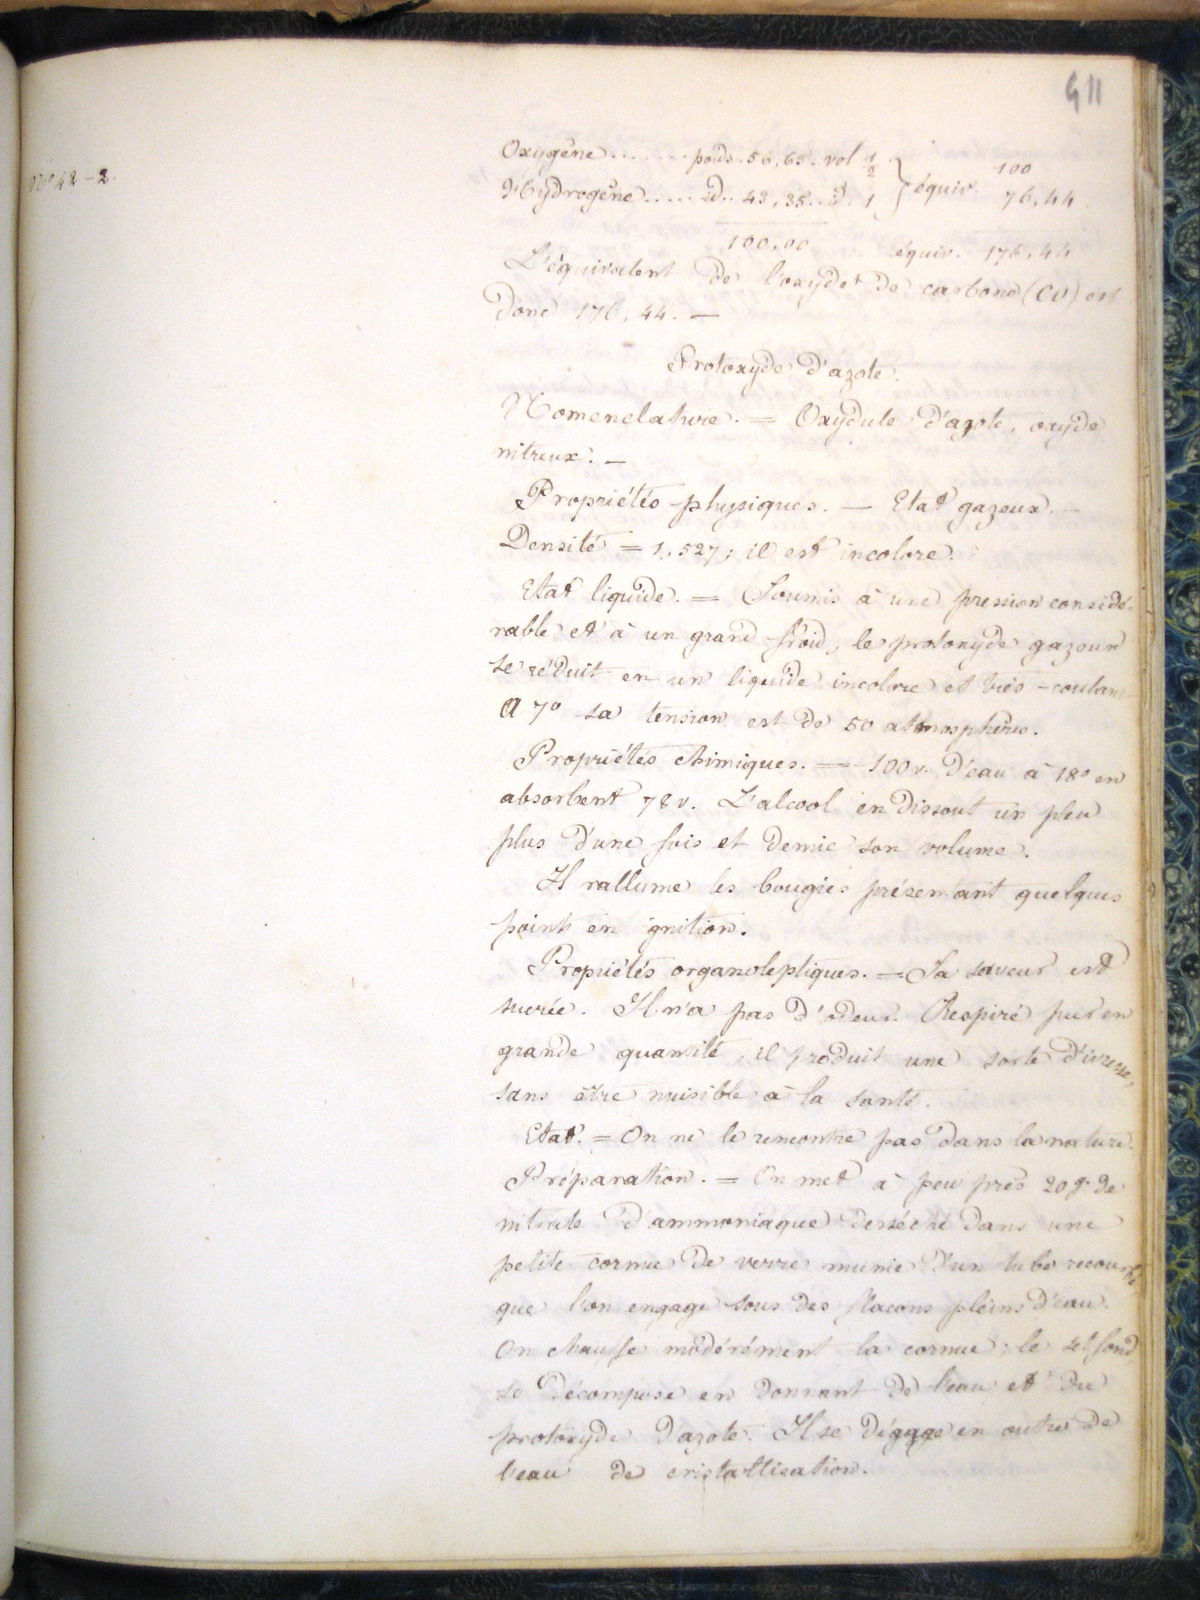 411
No 42-2.
Oxygène ....... poids. 56,65. vol 1/2 } équiv. 100
Hydrogène ..... id.. 43,35.. id. 1 76,44
100,00 équiv. 176,44
L'équivalent de l'oxyde de carbone (CO) est
donc 176,44. —
Protoxyde d'azote.
Nomenclature. = Oxydule d'azote, oxyde
nitreux. —
Propriétés physiques. — Etat gazeux. —
Densité = 1,527; il est incolore.
Etat liquide. = Soumis à une pression considé-
rable et à un grand froid, le protoxyde gazeux
se réduit en un liquide incolore et très-coulant
A 7° sa tension est de 50 atmosphères.
Propriétés chimiques. — 100 v. d'eau à 18° en
absorbent 78 v. L'alcool en dissout un peu
plus d'une fois et demie son volume.
Il rallume les bougies présentant quelques
points en ignition.
Propriétés organoleptiques. = Sa saveur est
sucrée. Il n'a pas d'odeur. Respiré pur en
grande quantité, il produit une sorte d'ivresse,
sans être nuisible à la santé.
Etat. = On ne le rencontre pas dans la nature.
Préparation. = On met à peu près 20 g. de
nitrate d'ammoniaque desséché dans une
petite cornue de verre munie d'un tube recourbé
que l'on engage sous des flacons pleins d'eau.
On chauffe modérément la cornue; le sel fond
se décompose en donnant de l'eau et du
protoxyde d'azote. Il se dégage en outre de
l'eau de cristallisation.